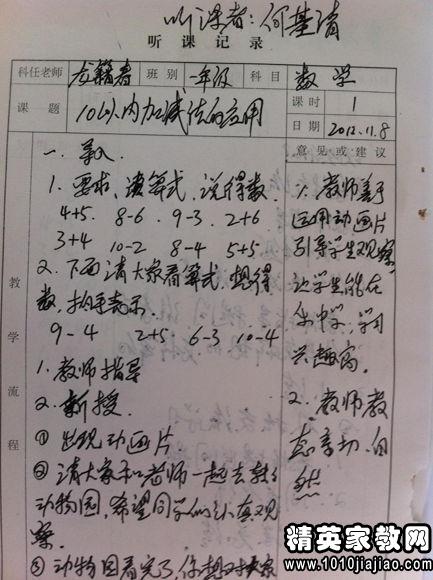 听课者:何基清
听课记录
科任老师 龙籍春 班别 一年级 科目 数学
课题 10以内加减法的应用 课时 1
日期 2012.11.8
教学流程
意见或建议
一、导入
1. 要求:读算式,说得数
4+5. 8-6. 9-3. 2+6
3+4 10-2 8-4 5+5
2. 下面请大家看算式,想得
数,执手表示.
9-4 2+5 6-3 10-4
1. 教师指导
2. 新授.
① 出现动画片
② 请大家和老师一起去数
动物园,希望同学们认真观
察.
③ 动物园看完了,你想对大家
1. 教师善于
运用动画片
引导学生观察
让学生能在
乐中学,学习
兴趣高.
2. 教师教
态亲切、自
然
精英家教网
www.1010jiajiao.com